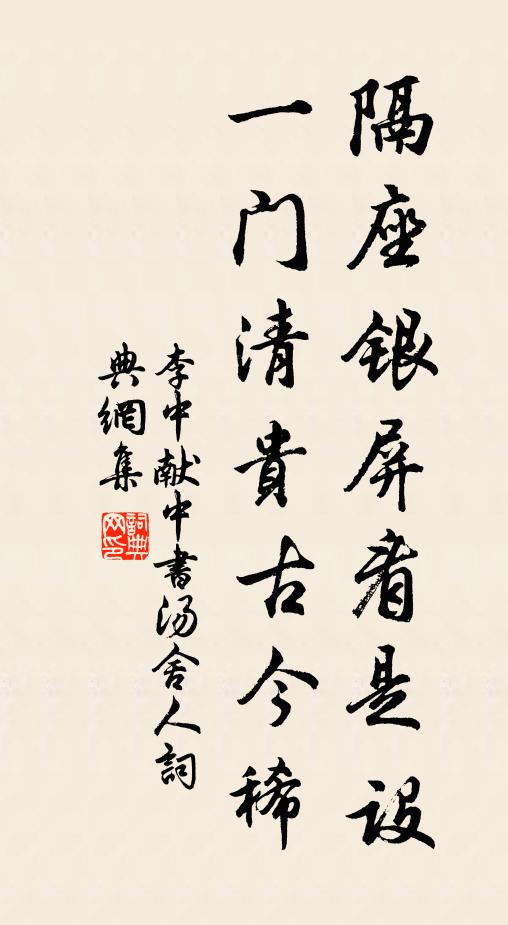 隔座銀屏看是設
一门清貴古今稀
李中献中書汤舍人詞
典網集
詞典网印